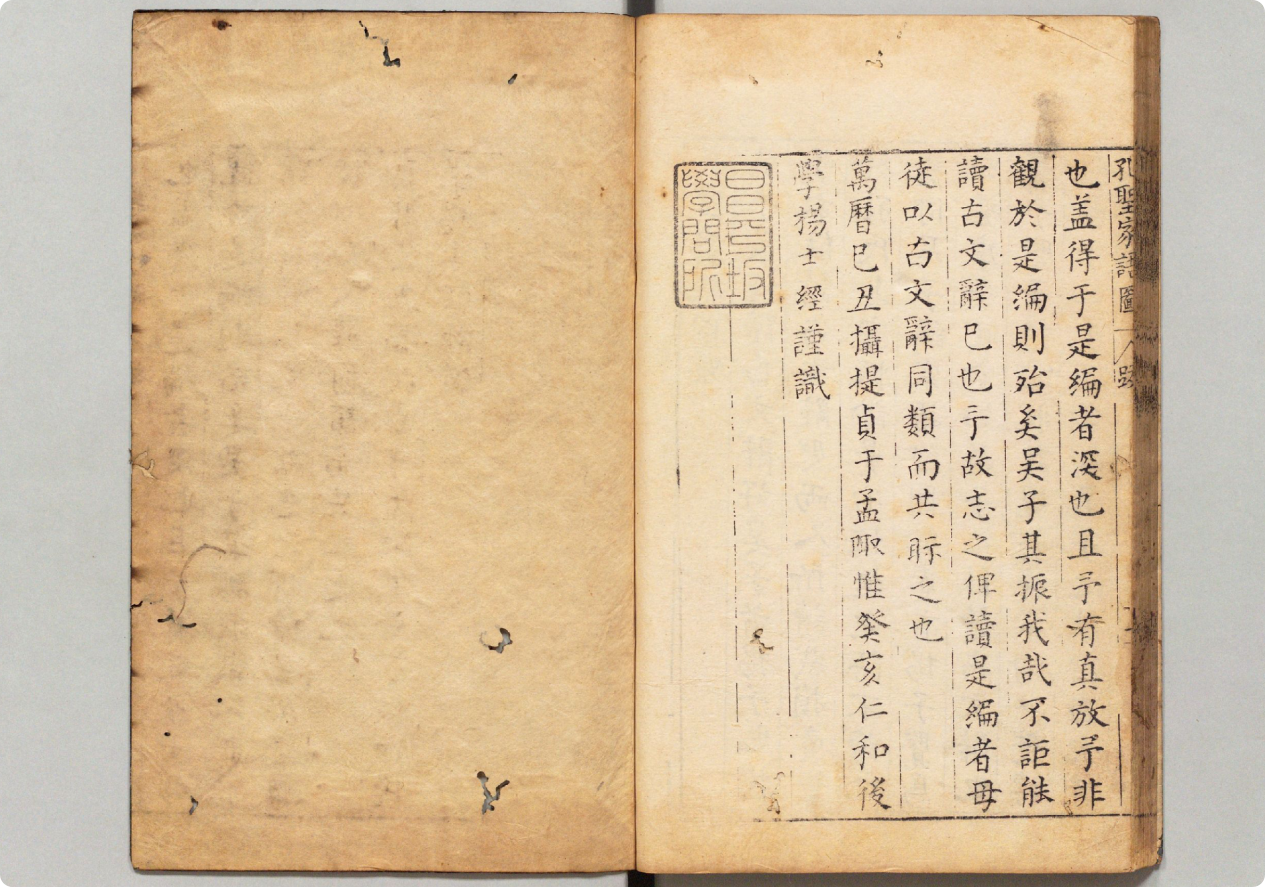 孔聖家語圖 跋
也盖得于是編者深也且予有真放予非
觀於是編則殆矣吴子其振我哉不詎能
讀古文辭已也予故志之俾讀是編者毋
徒以古文辭同類而共眎之也
萬曆己丑攝提貞于孟陬惟癸亥仁和後
學楊士經謹識
昌平坂
學問所